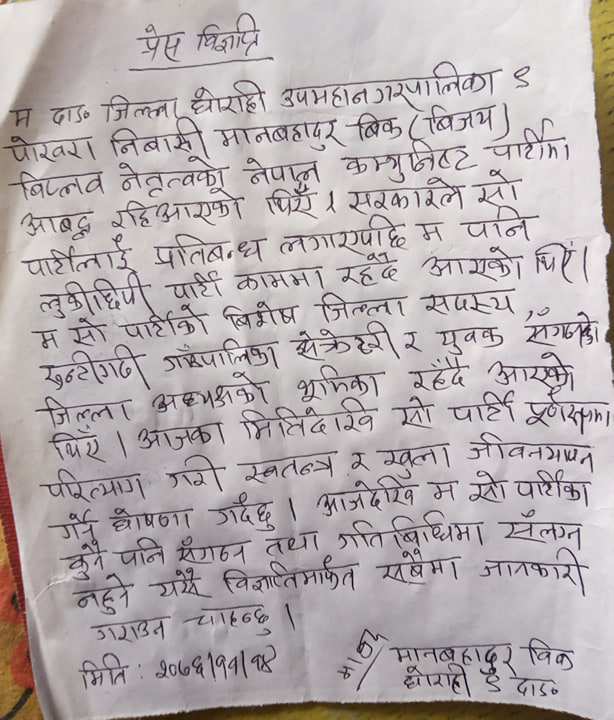 प्रेस विज्ञप्ति
म दाङ जिल्ला घोराही उपमहानगरपालिका ९
पोखरा निबासी मानबहादुर बिक (बिजय)
बिप्लव नेतृत्वको नेपाल कम्युनिस्ट पार्टीमा
आबद्ध रहिआएको थिएँ । सरकारले सो
पार्टीलाई प्रतिबन्ध लगाएपछि म पनि
लुकीछिपी पार्टी काममा रहँदै आएको थिएँ ।
म सो पार्टीको बिशेष जिल्ला सदस्य,
रुन्टीगढी गाँउपालिका सेक्रेटरी र युवक सँगठनको
जिल्ला अध्यक्षको भूमिका रहँदै आएको
थिएँ । आजका मितिदेखि सो पार्टी पूर्णरुपमा
परित्याग गरी स्वतन्त्र र खुला जीवनयापन
गर्ने घोषणा गर्दछु । आजदेखि म सो पार्टीका
कुनै पनि सँगठन तथा गतिबिधिमा सँलग्न
नहुने यसै विज्ञप्तिमार्फत सबैमा जानकारी
गराउन चाहन्छु ।
मिति : २०७६।११।१४
मानबहादुर विक
घोराही ९ दाङ